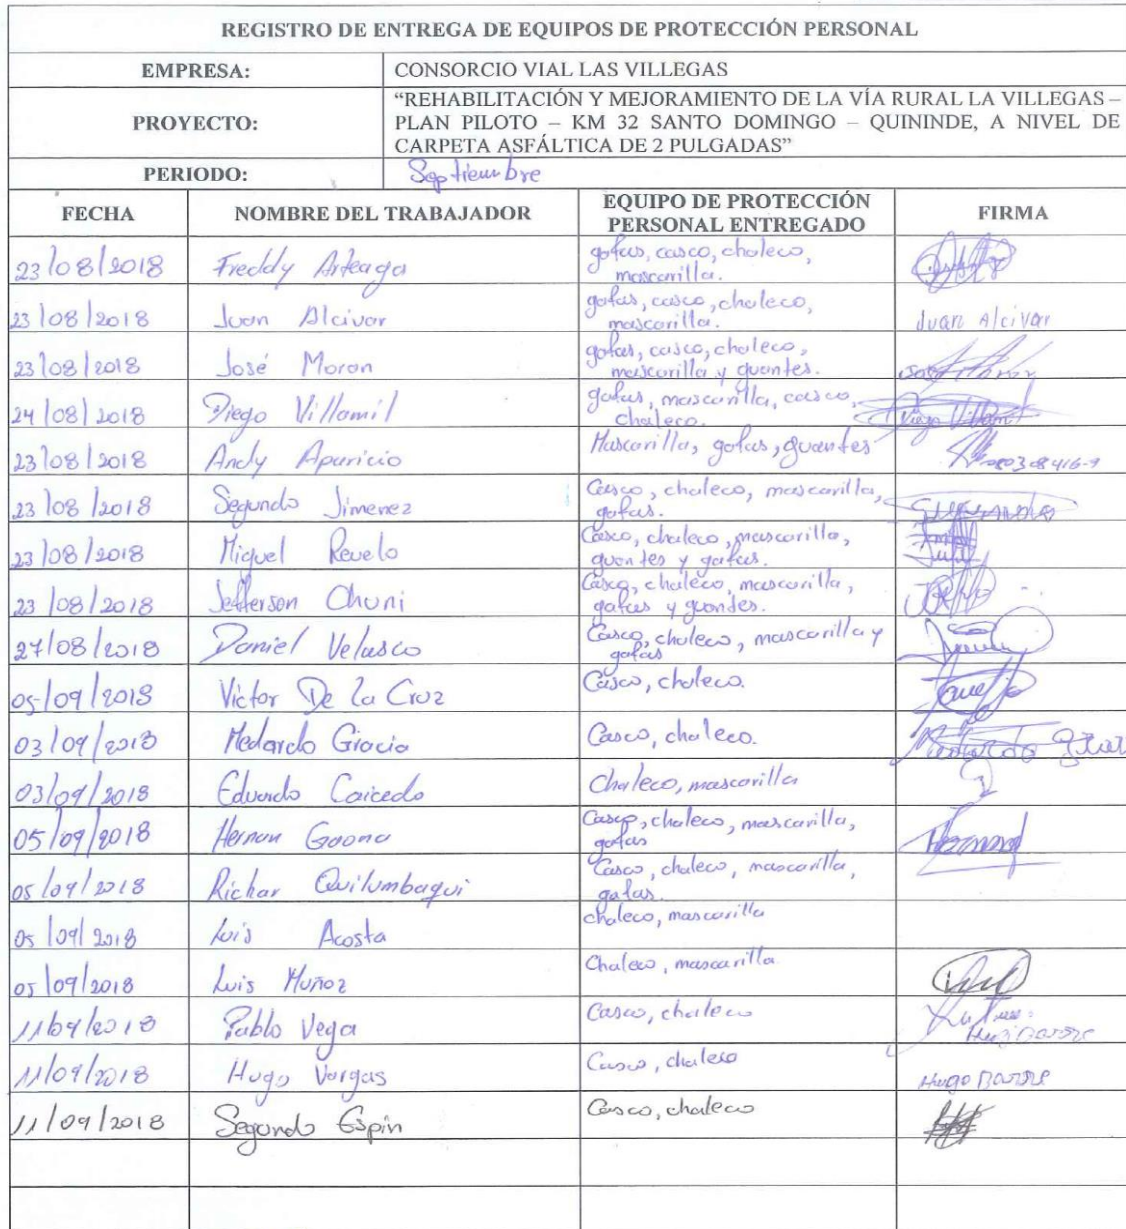 REGISTRO DE ENTREGA DE EQUIPOS DE PROTECCIÓN PERSONAL
EMPRESA: CONSORCIO VIAL LAS VILLEGAS
PROYECTO: “REHABILITACIÓN Y MEJORAMIENTO DE LA VÍA RURAL LA VILLEGAS –
PLAN PILOTO – KM 32 SANTO DOMINGO – QUININDE, A NIVEL DE
CARPETA ASFÁLTICA DE 2 PULGADAS”
PERIODO: Septiembre
FECHA NOMBRE DEL TRABAJADOR EQUIPO DE PROTECCIÓN PERSONAL ENTREGADO FIRMA
23/08/2018 Freddy Arteaga gafas, casco, chaleco,
mascarilla.
23/08/2018 Juan Alcivar gafas, casco, chaleco,
mascarilla. Juan Alcivar
23/08/2018 José Moron gafas, casco, chaleco,
mascarilla y guantes.
24/08/2018 Diego Villamil gafas, mascarilla, casco,
chaleco. Diego Villamil
23/08/2018 Andy Aparicio Mascarilla, gafas, guantes
23/08/2018 Segundo Jimenez Casco, chaleco, mascarilla,
gafas.
23/08/2018 Miguel Revelo Casco, chaleco, mascarilla,
guantes y gafas.
23/08/2018 Jefferson Chuni Casco, chaleco, mascarilla,
gafas y guantes.
27/08/2018 Daniel Velasco Casco, chaleco, mascarilla y
gafas
05/09/2018 Victor De La Cruz Casco, chaleco.
03/09/2018 Medardo Gracia Casco, chaleco.
03/09/2018 Eduardo Caicedo Chaleco, mascarilla
05/09/2018 Hernan Gaona Casco, chaleco, mascarilla,
gafas
05/09/2018 Richar Quilumbaqui Casco, chaleco, mascarilla,
gafas.
05/09/2018 Luis Acosta chaleco, mascarilla
05/09/2018 Luis Muñoz Chaleco, mascarilla
11/09/2018 Pablo Vega Casco, chaleco
11/09/2018 Hugo Vargas Casco, chaleco Hugo
11/09/2018 Segundo Espin Casco, chaleco